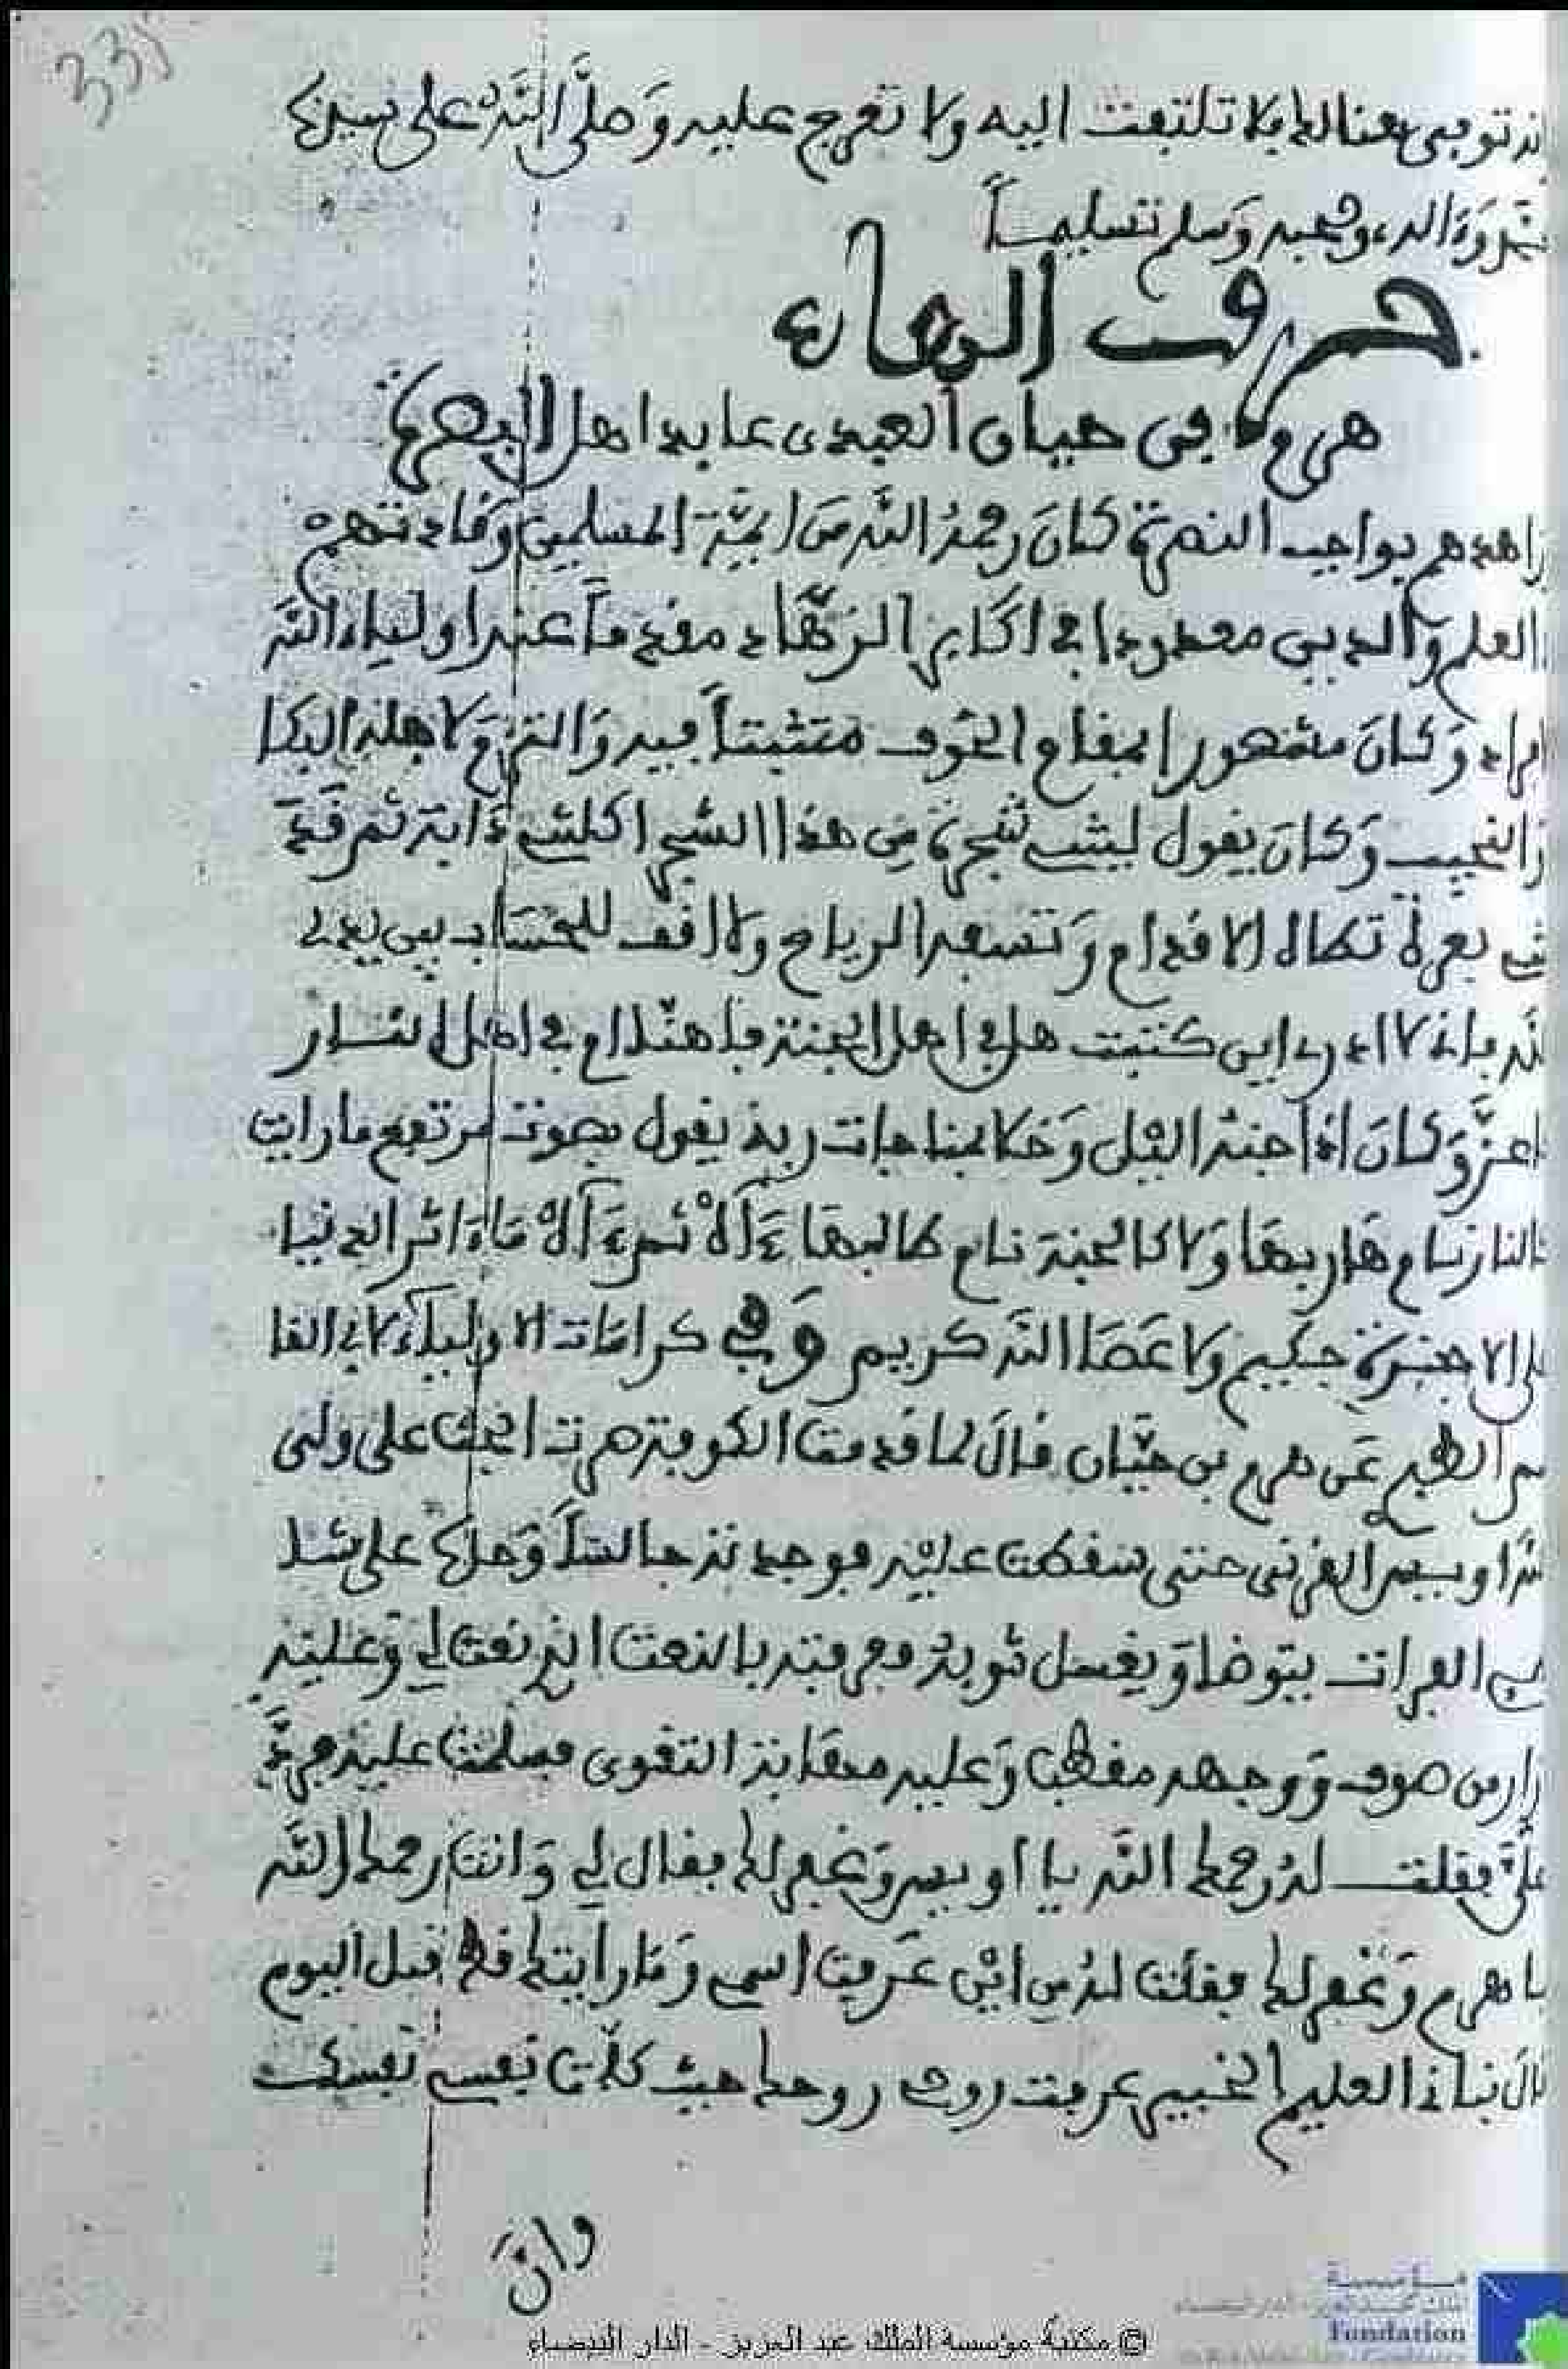 331
توفي هنالك فلا تلتفت اليه ولا تعرج عليه وَصلَّى اللَّهُ على سيدنا
وَءَاله وصحبه وَسلم تسليماً
حرف الهاء
هرم بن حيان العبدي عابد اهل البصرة
زاهدهم بواجب النصرة كانَ رحمهُ اللَّه منَ ايمَّة المسلمين وَقادتهم
العلم وَالدين معدودا في اكَابر الزهَّاد مقدماً عند اولياء اللَّه
وَكانَ مشهورا بمقام الخوف متثبتاً فيه وَالتزم لاهله البكا
وَالنحيب وَكانَ يقول ليتني شجرة من هذا الشجر اكلتني دَابة ثم قَدَ
بعرة تطاها الاقدام وَتنسفه الرياح ولا اقف للحسَاب بين يدي
لا ادري اين كنت هل في اهل الجنة فاهنَّا ام في اهل النار
وَكانَ اذا جنه اليْل وَخلا بمناجات ربه يقول بصوت مرتفع ما رايت
كالنار نام هَاربهَا وَلا كالجنة نام طالبهَا ءَالاْ ثم ءَالاْ مَا ءَاثر الدنيا
على الاخرَة حكيم ولا عَصَا اللَّه كريم وَفي كرامَات الاوليَاء لابي القا
الطبر عَن هرم بن حيَّان قالَ لما قدمت الكوفة لم ابحث على ولي
اويس القرني حتى سقطت عليْه فوجدته جالسًا وَحدهُ على شط
الفرات يتوضا وَيغسل ثوبهُ فعرفته بالنعت الذي نعت لي وَعليْه
ازار من صوف وَوجهه مقطب وَعليه مهَابة التقوى فسلمت عليْه فردَّ
عليَّ فقلت لهُ رحمك اللَّه يا اويس وَغفر لك فقال لي وَانت رحمك اللَّه
يا هرم وَغفر لك فقلت لهُ من ايْن عَرفت اسمي وَمَا رايتك قط قبل اليوم
قالَ نباني العليم الخبير عرفت روحي روحك حيث كلَّمت نفسي نفسك
وانَّ
مؤسسة
Fondation
© مكتبة مؤسسة الملك عبد العزيز - الدار البيضاء